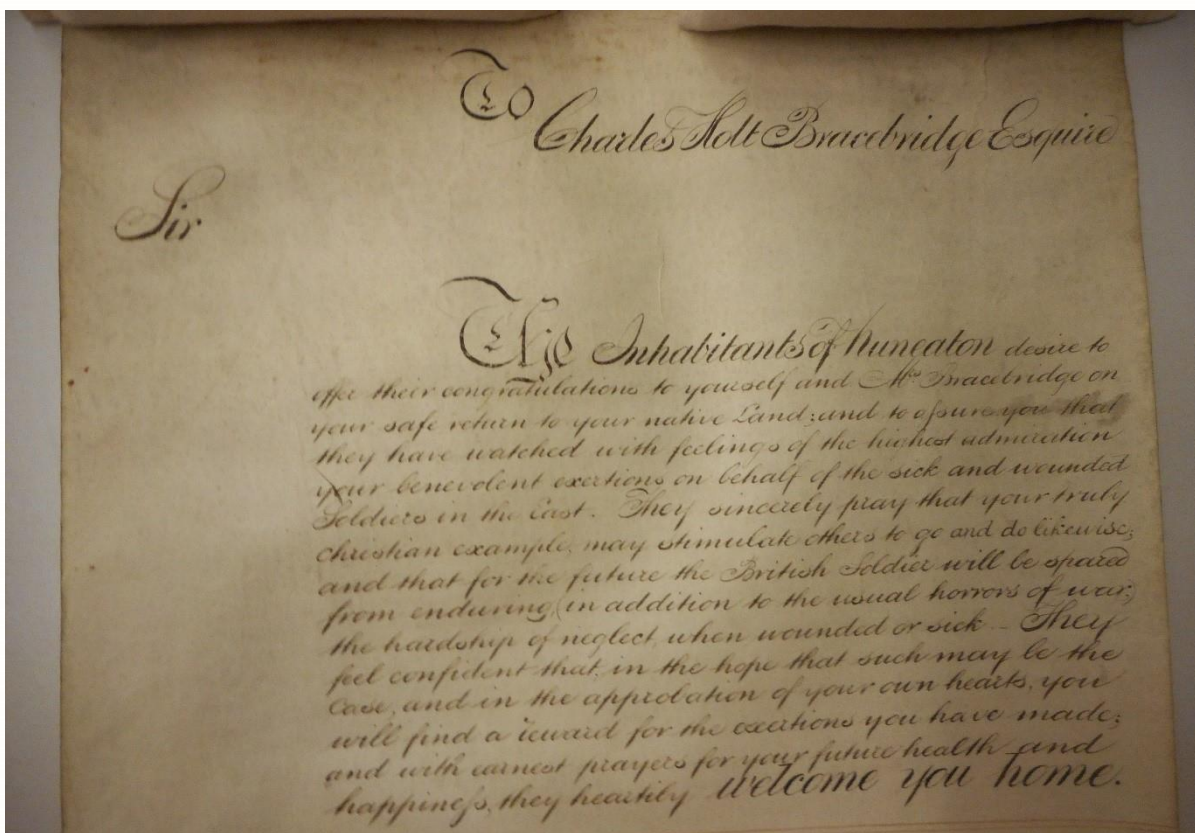 To
Charles Holt Bracebridge Esquire
Sir
The Inhabitants of Nuneaton desire to
offer their congratulations to yourself and Mrs Bracebridge on
your safe return to your native Land; and to assure you that
they have watched with feelings of the highest admiration
your benevolent exertions on behalf of the sick and wounded
Soldiers in the East. They sincerely pray that your truly
christian example, may stimulate others to go and do likewise;
and that for the future the British Soldier will be spared
from enduring, (in addition to the usual horrors of war;)
the hardship of neglect, when wounded or sick – They
feel confident that, in the hope that such may be the
Case, and in the approbation of your own hearts, you
will find a reward for the exertions you have made;
and with earnest prayers for your future health and
happiness, they heartily welcome you home.